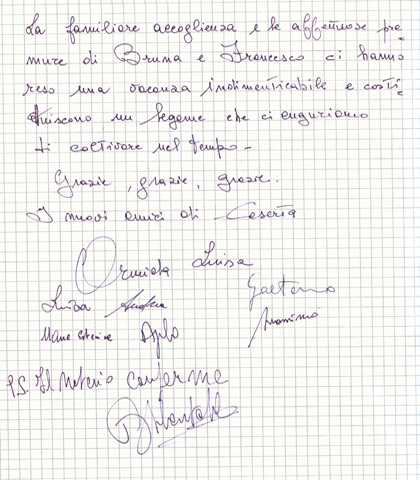 La familiare accoglienza e le affettuose pre
mure di Bruna e Francesco ci hanno
reso una vacanza indimenticabile e costi
tuiscono un legame che ci auguriamo
di coltivare nel tempo -
Grazie, grazie, grazie.
I nuovi amici di Caserta
Luisa
Gaetano
Luisa Andrea
Massimo
P.S. Il Notaio conferma